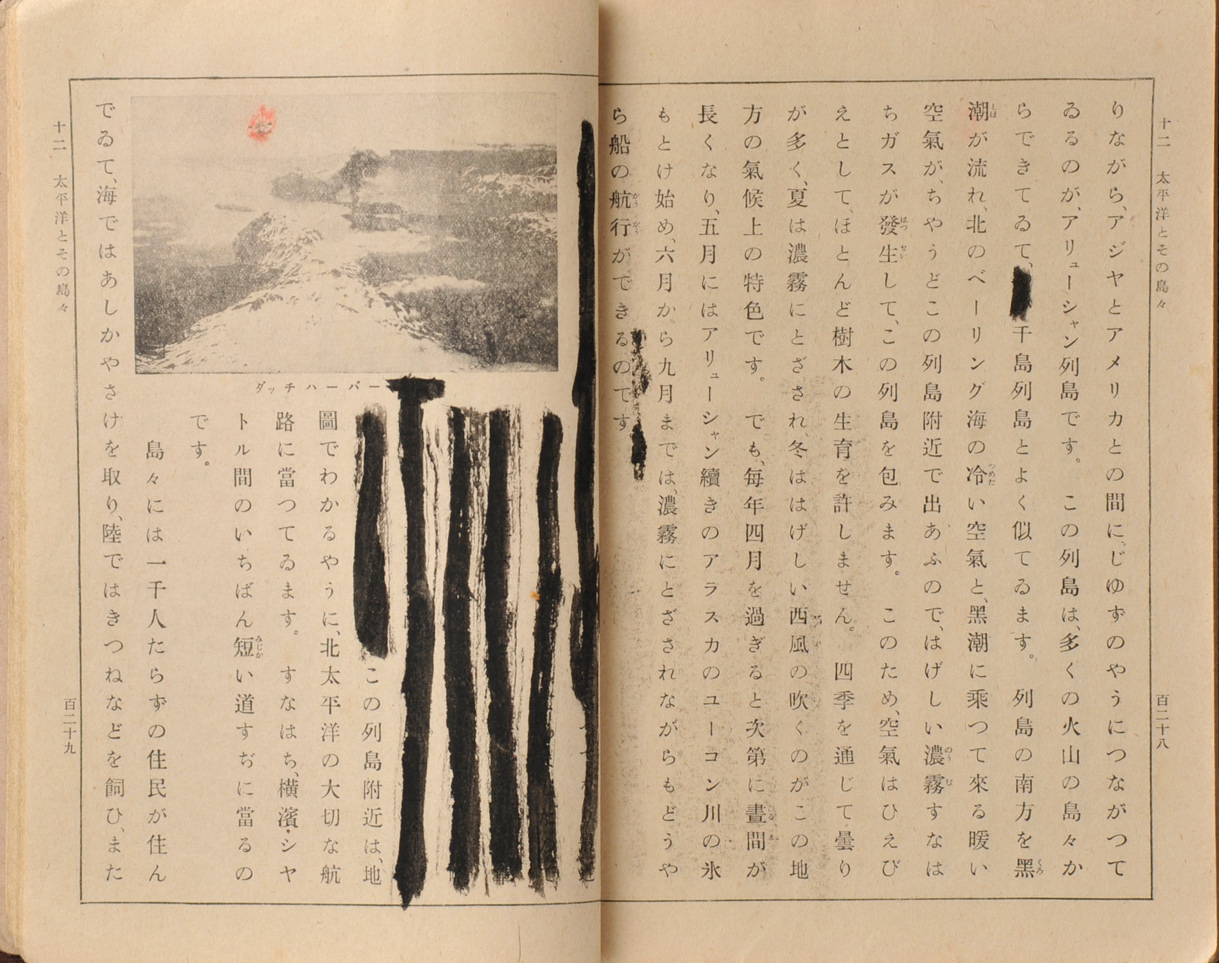 十二　太平洋とその島々
百二十八
りながら、アジヤとアメリカとの間に、じゆずのやうにつながつて
ゐるのが、アリューシャン列島です。この列島は、多くの火山の島々か
らできてゐて、千島列島とよく似てゐます。列島の南方を黑
潮が流れ、北のベーリング海の冷い空氣と、黑潮に乘つて來る暖い
空氣が、ちやうどこの列島附近で出あふので、はげしい濃霧すなは
ちガスが發生して、この列島を包みます。このため、空氣はひえび
えとして、ほとんど樹木の生育を許しません。四季を通じて曇り
が多く、夏は濃霧にとざされ冬ははげしい西風の吹くのがこの地
方の氣候上の特色です。でも、每年四月を過ぎると次第に晝間が
長くなり、五月にはアリューシャン續きのアラスカのユーコン川の氷
もとけ始め、六月から九月までは、濃霧にとざされながらもどうや
ら船の航行ができるのです
ダッチハーバー
この列島附近は、地
圖でわかるやうに、北太平洋の大切な航
路に當つてゐます。すなはち、橫濱・シヤ
トル間のいちばん短い道すぢに當るの
です。
島々には一千人たらずの住民が住ん
でゐて、海ではあしかやさけを取り、陸ではきつねなどを飼ひ、また
十二　太平洋とその島々
百二十九